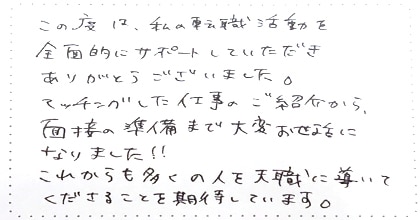 この度は、私の転職活動を
全面的にサポートしていただき
ありがとうございました。
マッチングした仕事のご紹介から、
面接の準備まで大変お世話に
なりました!!
これからも多くの人を天職に導いて
くださることを期待しています。